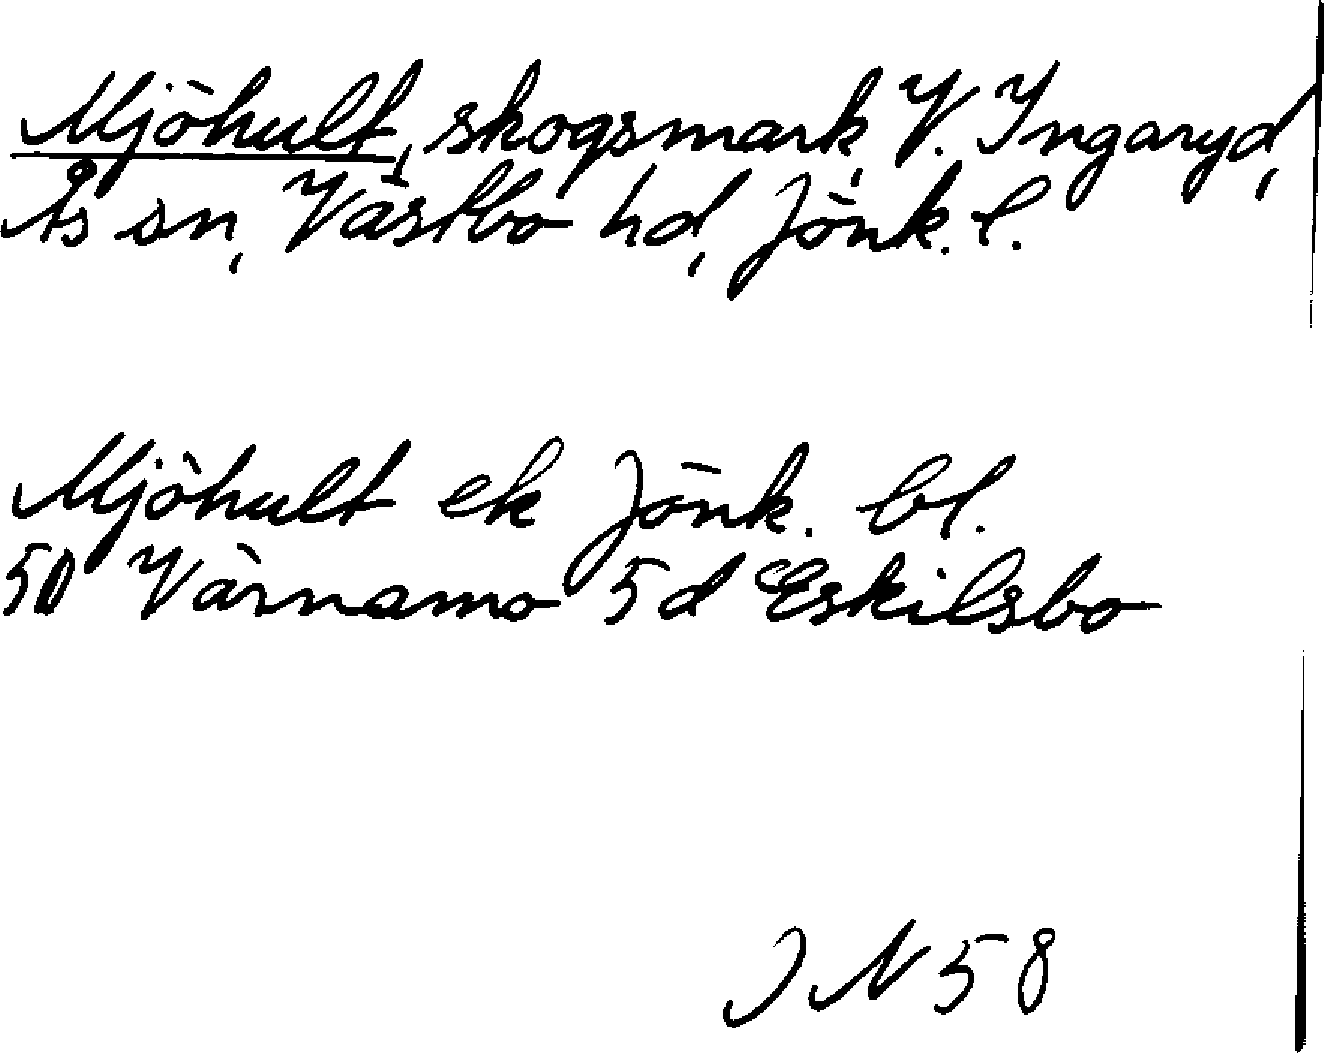 Mjöhult, skogsmark, V. Ingaryd,
Ås sn, Västbo hd, Jönk. l.
Mjöhult ek Jönk. bl.
5D Värnamo 5d Eskilsbo
JN 58